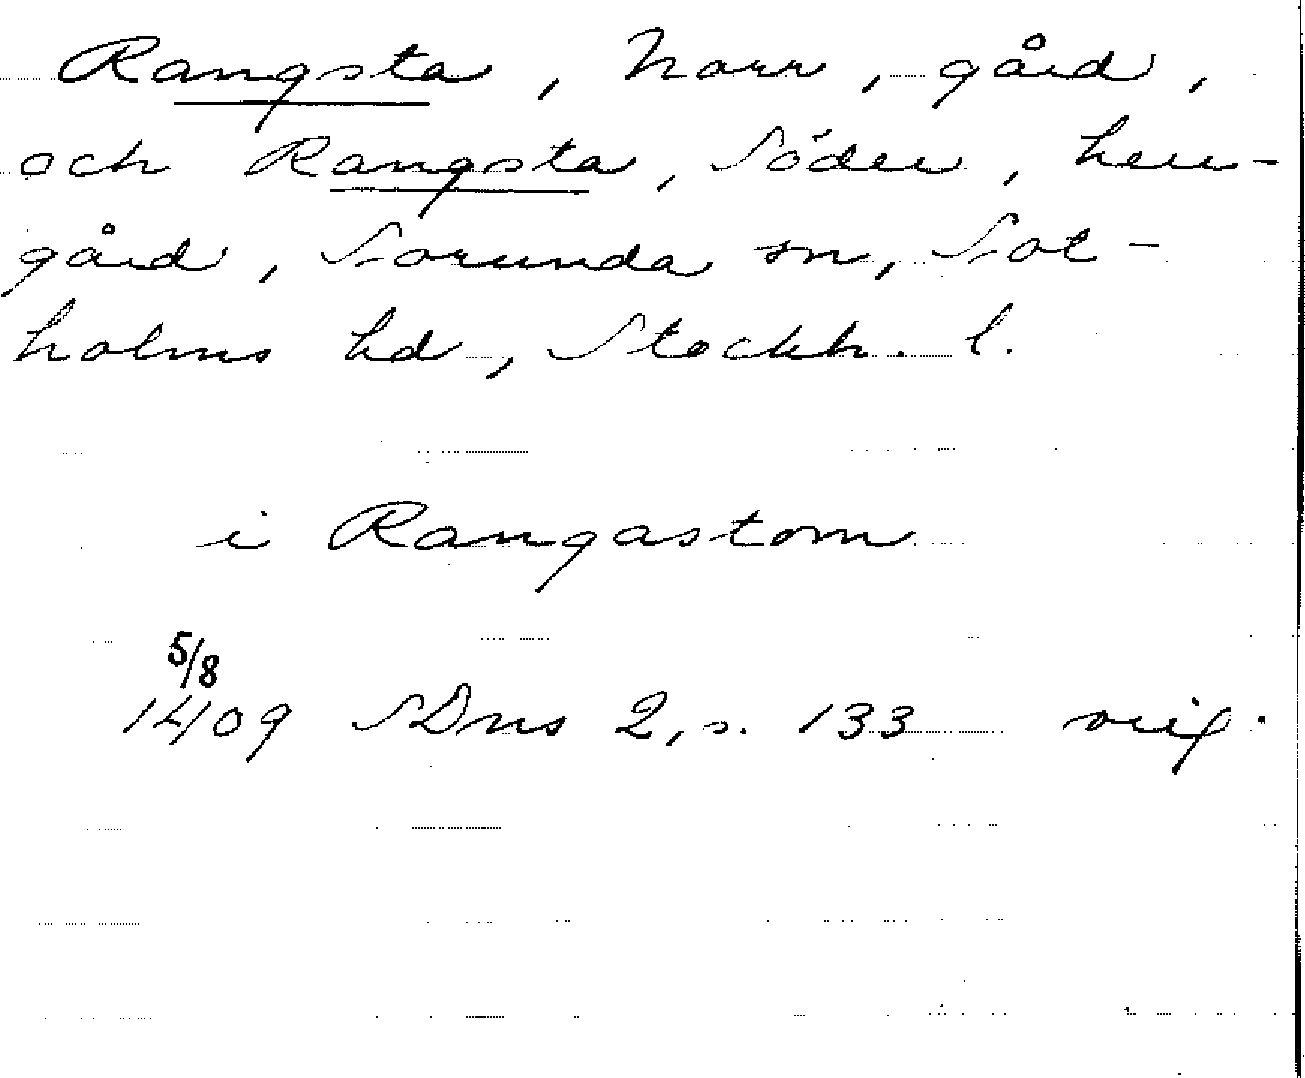 Rangsta, Norr, gård,
och Rangsta, Söder, herr-
gård, Sorunda sn, Sot-
holms hd, Stockh. l.
i Rangastom
5/8
1409 SDns 2, s. 133 orig.